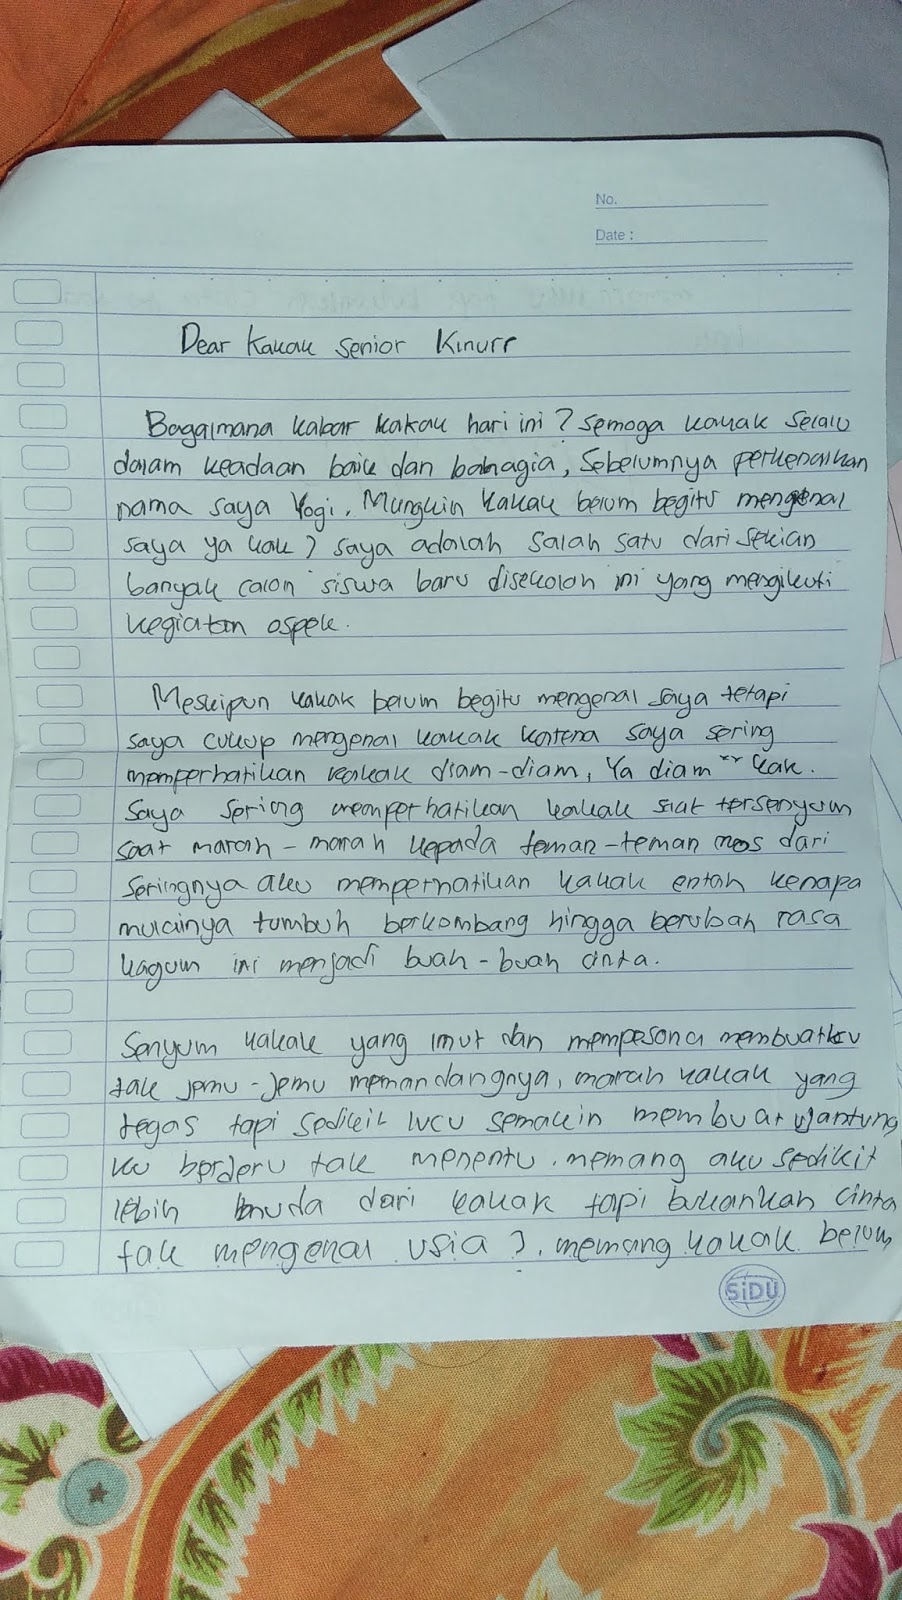 No.
Date :
Dear Kakak senior Kinurr
Bagaimana kabar kakak hari ini? semoga kakak selalu
dalam keadaan baik dan bahagia, Sebelumnya perkenalkan
nama saya Yogi, Mungkin kakak belum begitu mengenal
saya ya kak? saya adalah salah satu dari sekian
banyak calon siswa baru disekolah ini yang mengikuti
kegiatan ospek.
Meskipun kakak belum begitu mengenal saya tetapi
saya cukup mengenal kakak karena saya sering
memperhatikan kakak diam-diam, Ya diam" kak.
Saya sering memperhatikan kakak saat tersenyum
saat marah-marah kepada teman-teman mos dari
seringnya aku memperhatikan kakak entah kenapa
mulainya tumbuh berkembang hingga berubah rasa
kagum ini menjadi buah-buah cinta.
Senyum kakak yang imut dan mempesona membuatku
tak jemu-jemu memandangnya, marah kakak yang
tegas tapi sedikit lucu semakin membuat jantung
ku berderu tak menentu. memang aku sedikit
lebih muda dari kakak tapi bukankah cinta
tak mengenal usia?. memang kakak belum
SiDU